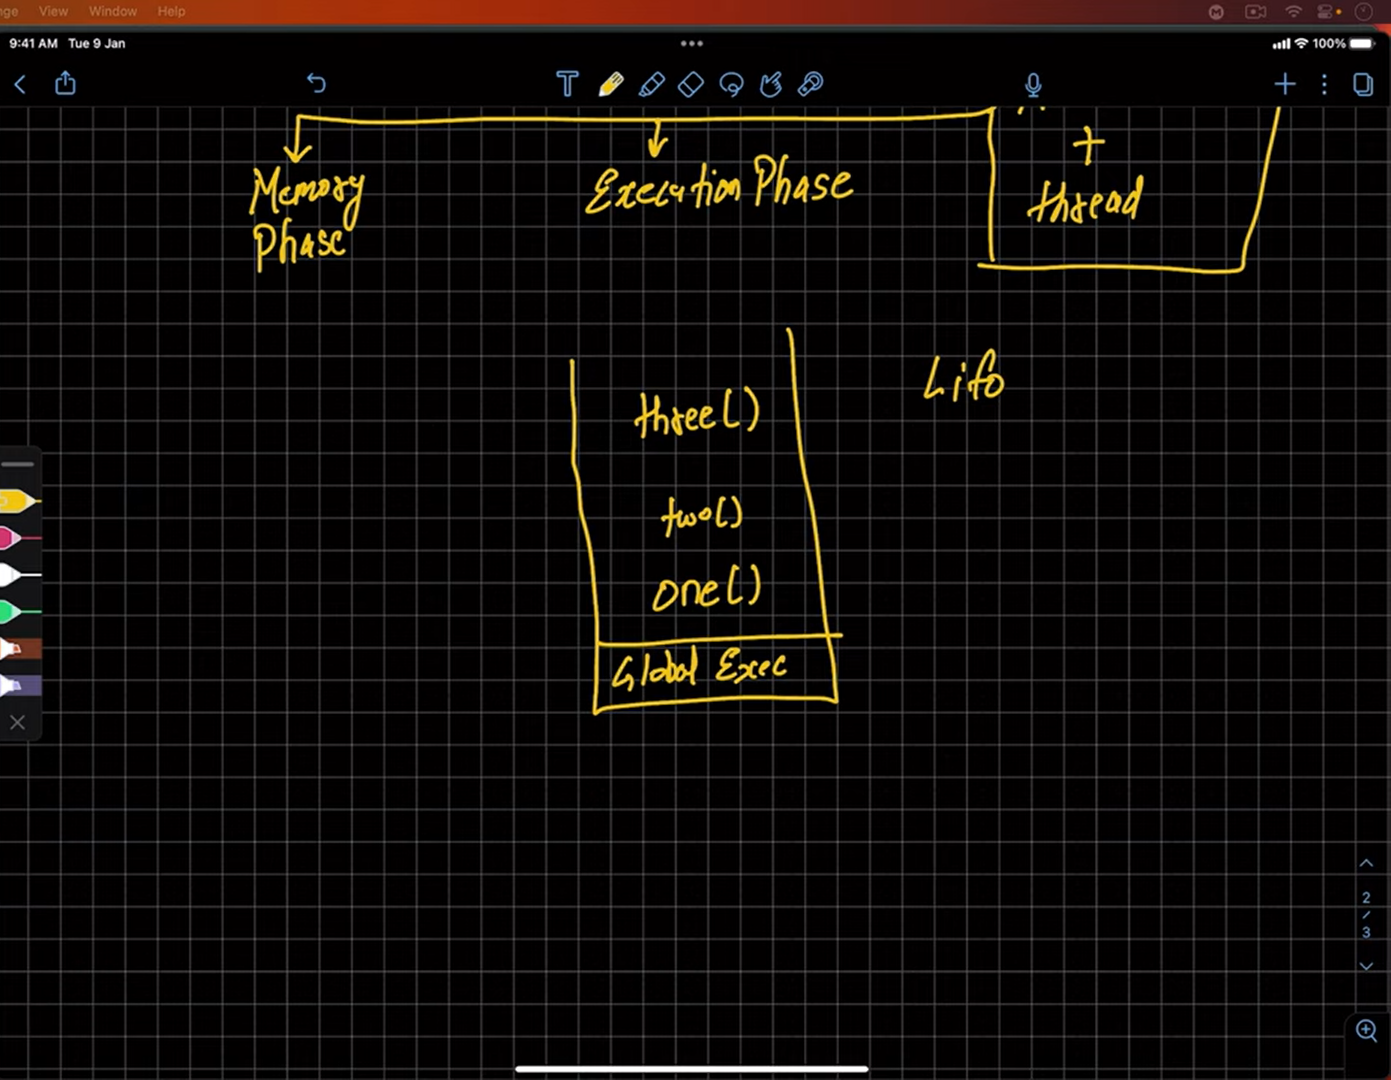 nge View Window Help
9:41 AM Tue 9 Jan
100%
T
+
Memory
Phase
Execution Phase
thread
Lifo
three()
two()
one()
Global Exec
5
2
/
3